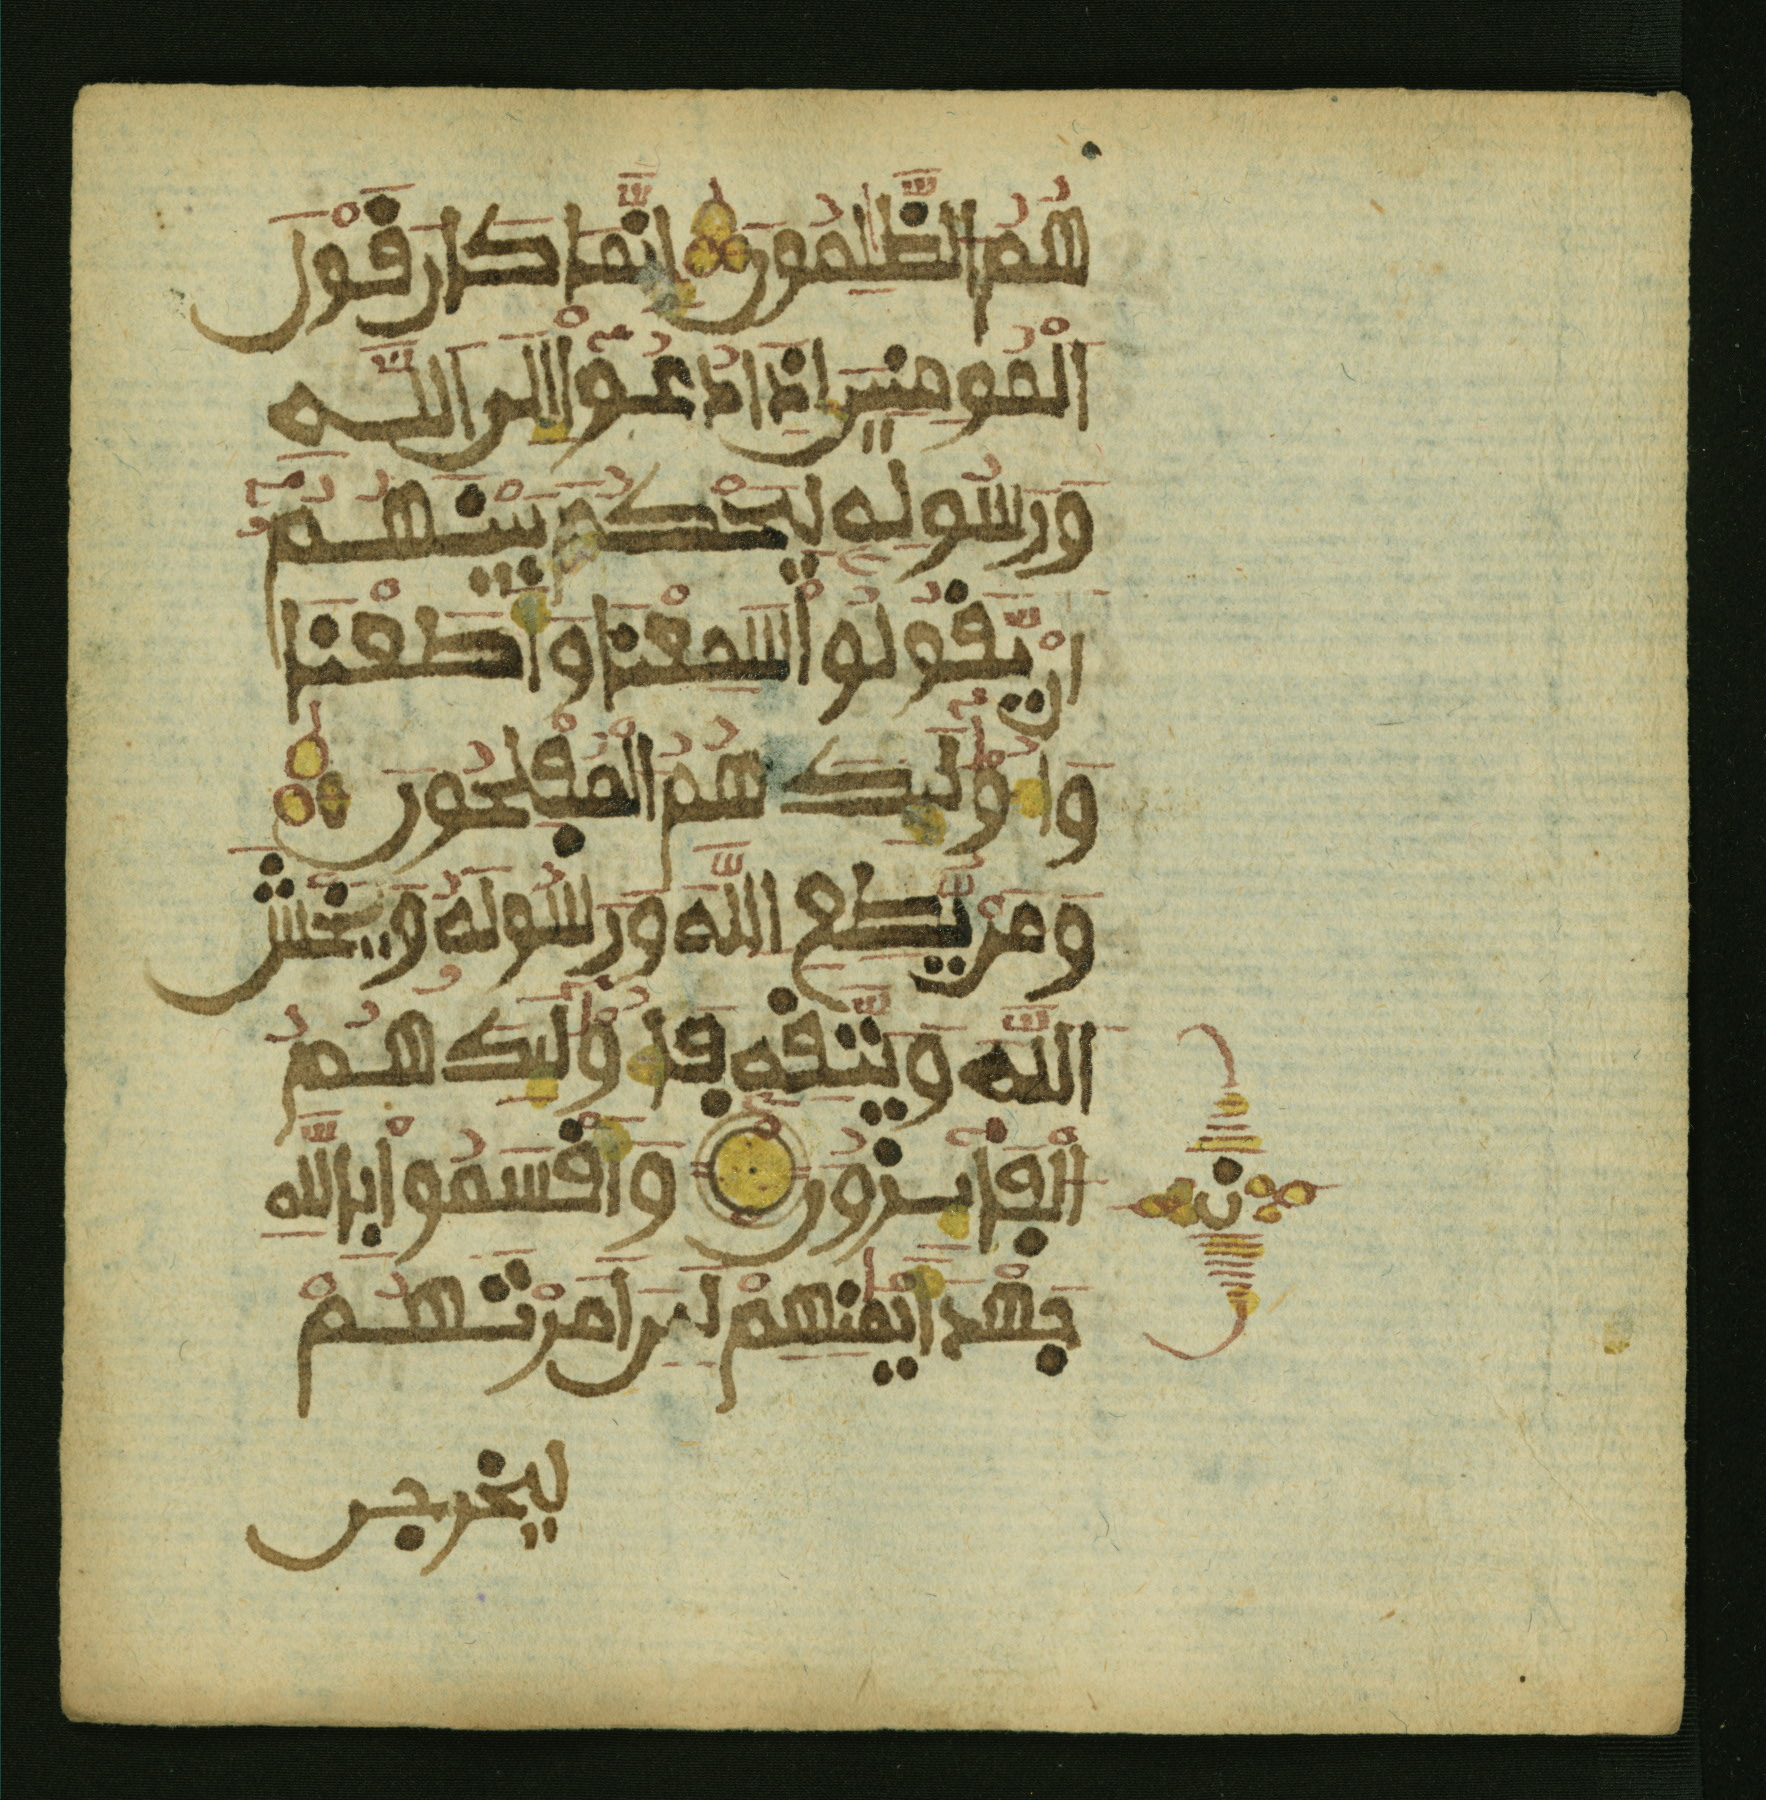 هُمُ الظَّٰلِمُونَ إِنَّمَا كَانَ قَوْلَ
الْمُومِنِينَ إِذَا دُعُوٓا إِلَى اللَّهِ
وَرَسُولِهِ لِيَحْكُمَ بَيْنَهُمُٓ
أَنْ يَّقُولُوا سَمِعْنَا وَأَطَعْنَا
وَأُوْلَٰٓئِكَ هُمُ الْمُفْلِحُونَ
وَمَنْ يُّطِعِ اللَّهَ وَرَسُولَهُ وَيَخْشَ
اللَّهَ وَيَتَّقِهِ فَأُوْلَٰٓئِكَ هُمُ
الْفَآئِزُونَ وَأَقْسَمُوا بِاللَّهِ
ن
جَهْدَ أَيْمَٰنِهِمْ لَئِنَ أَمَرْتَهُمْ
ليخرجن